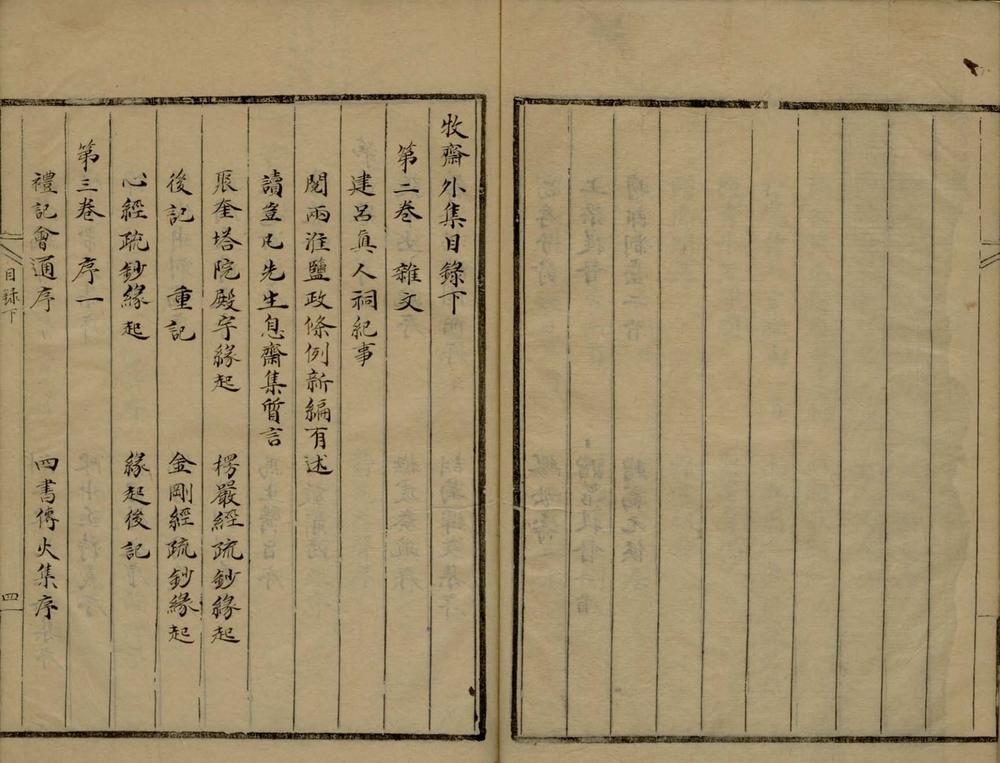 牧齋外集目錄下
第二卷 雜文
建呂眞人祠紀事
閱兩淮鹽政條例新編有述
讀豈凡先生息齋集質言
張奎塔院殿宇緣起 楞嚴經疏鈔緣起
後記 重記 金剛經疏鈔緣起
心經疏鈔緣起 緣起後記
第三卷 序一
禮記會通序 四書傳火集序
目錄下 四